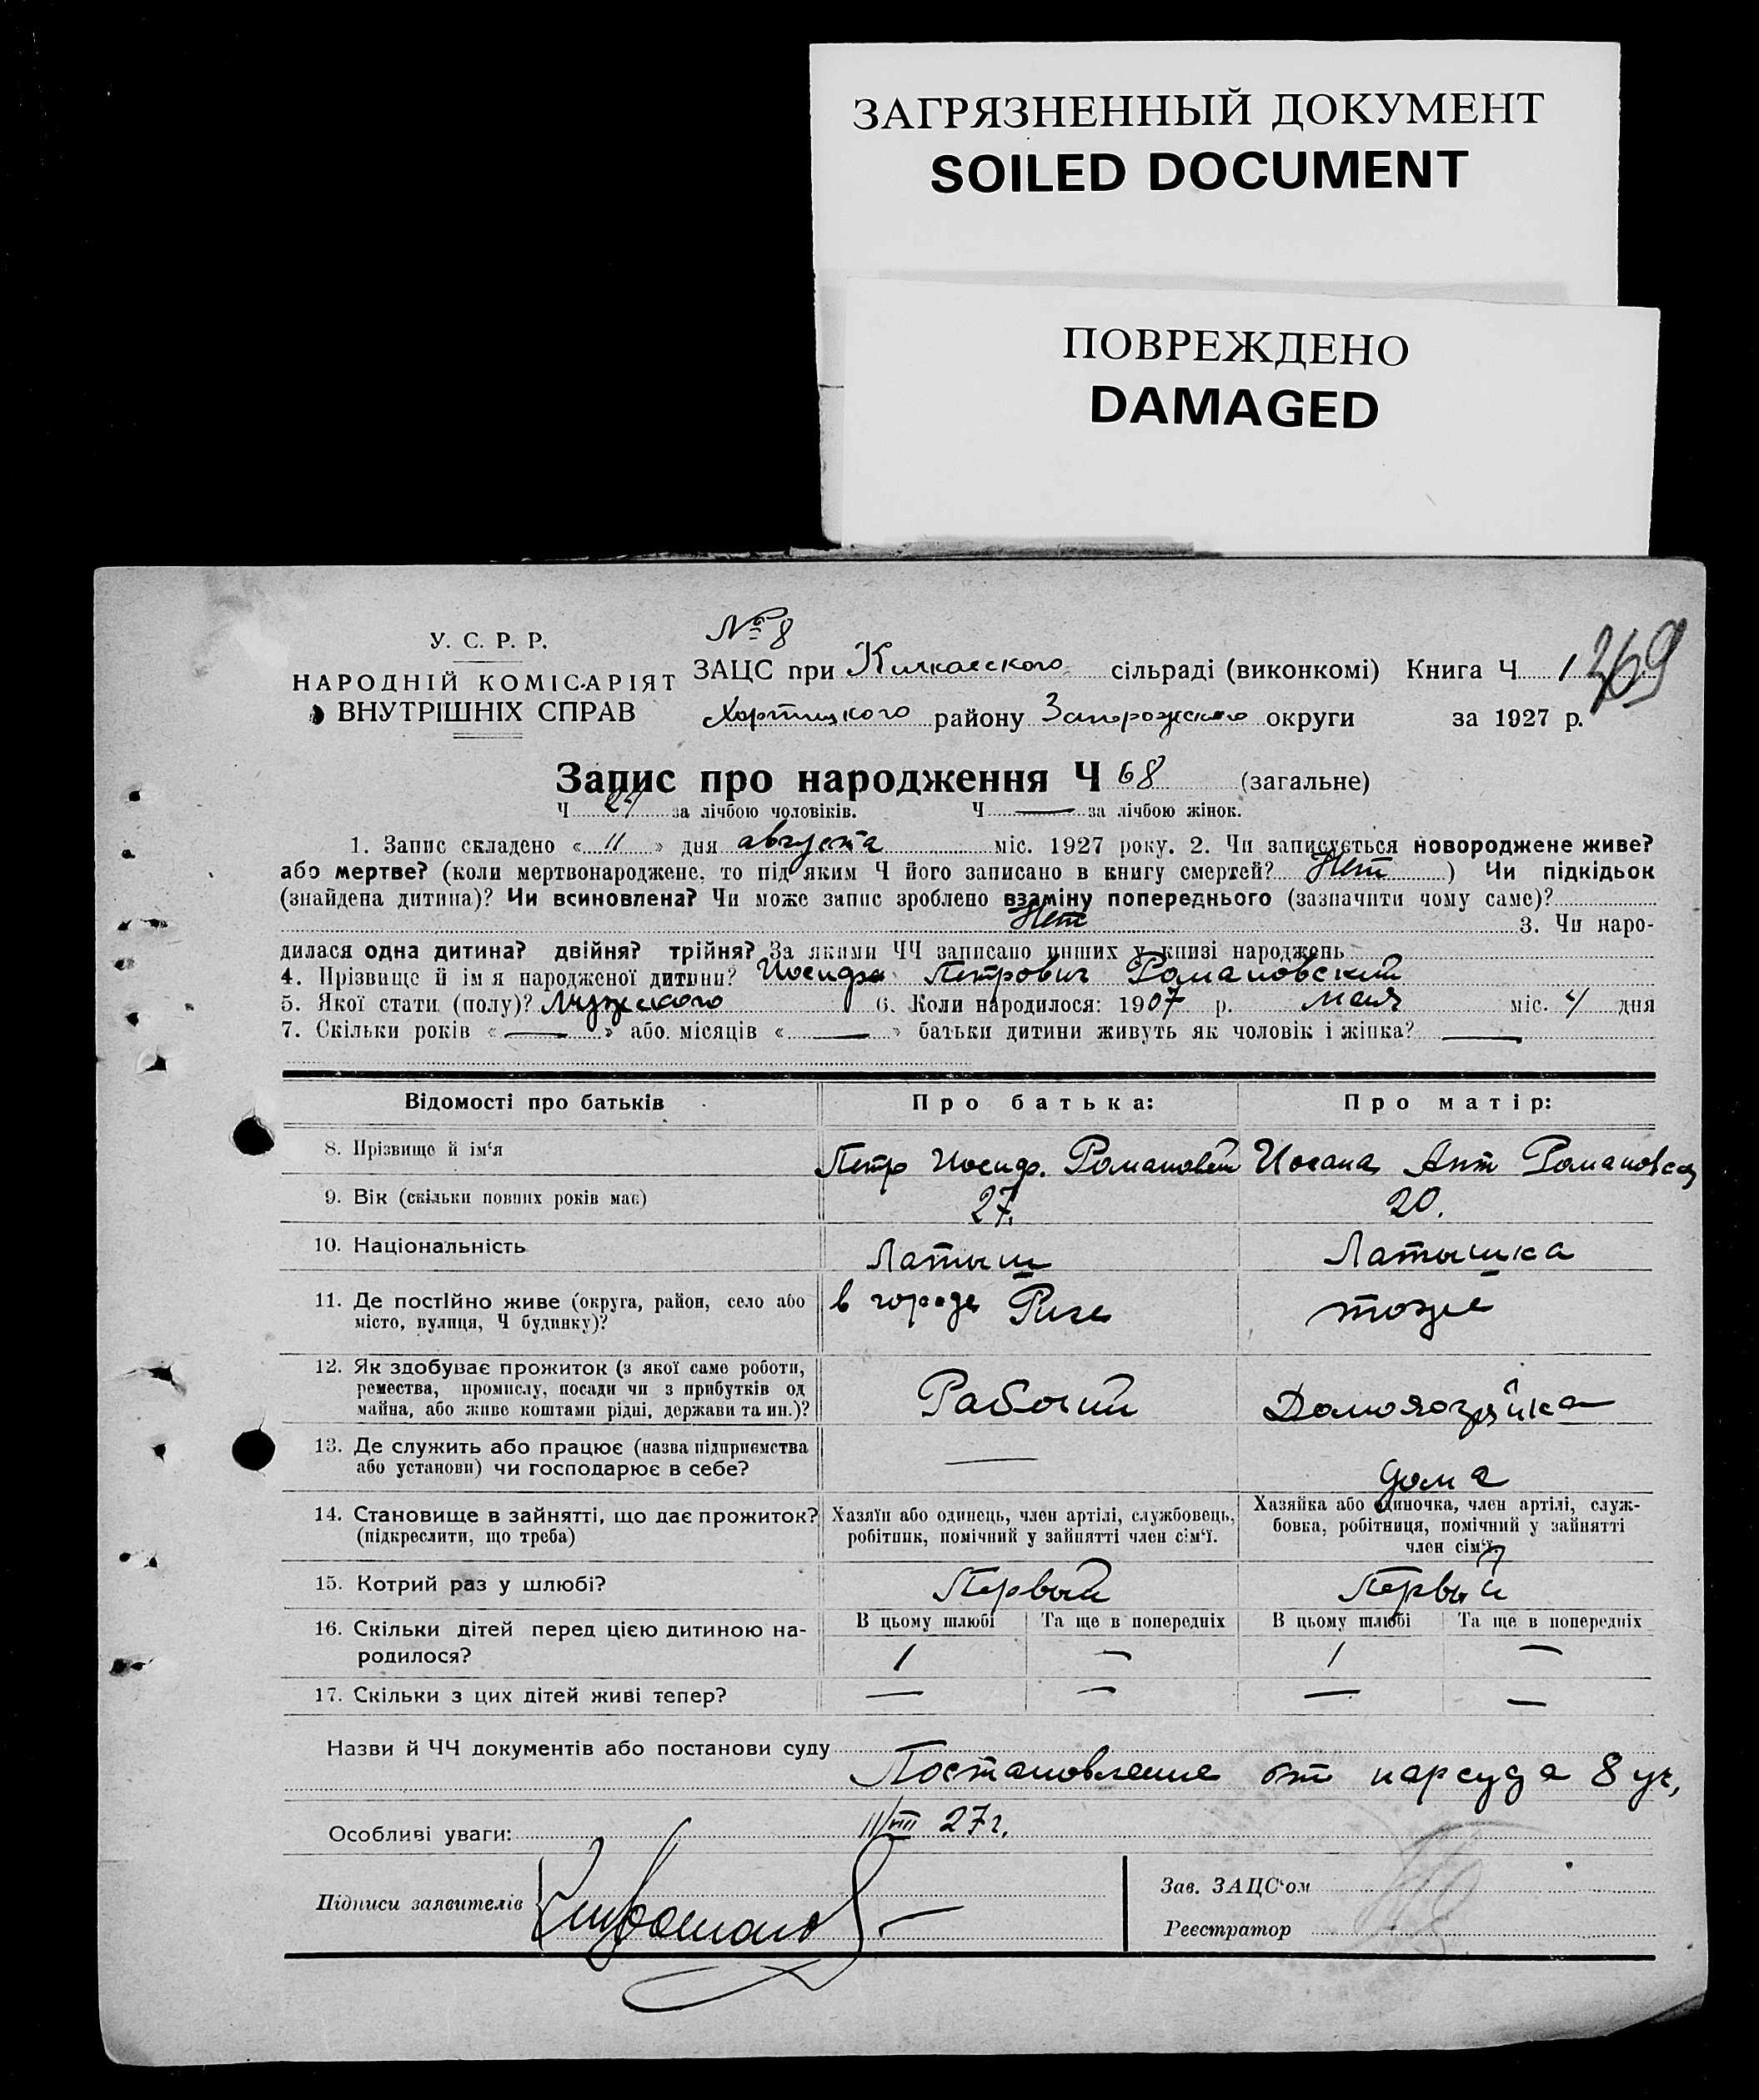 ЗАГРЯЗНЕННЫЙ ДОКУМЕНТ
SOILED DOCUMENT
ПОВРЕЖДЕНО
DAMAGED
№ 8
У. С. Р. Р.
НАРОДНІЙ КОМІСАРІЯТ
ВНУТРІШНІХ СПРАВ
ЗАЦС при Кичкасского сільраді (виконкомі) Книга Ч 1 269
Хортицкого району Запорожского округи за 1927 р.
Запис про народження Ч 68 (загальне)
Ч 27 за лічбою чоловіків. Ч — за лічбою жінок.
1. Запис складено « 11 » дня августа міс. 1927 року. 2. Чи записується новороджене живе?
або мертве? (коли мертвонароджене, то під яким Ч його записано в книгу смертей? Нет ) Чи підкідьок
(знайдена дитина)? Чи всиновлена? Чи може запис зроблено взаміну попереднього (зазначити чому саме)?
Нет 3. Чи наро-
дилася одна дитина? двійня? трійня? За якими ЧЧ записано инших у книзі народжень
4. Прізвище й імя народженої дитини? Иосифа Петрович Романовский
5. Якої стати (полу)? Мужского 6. Коли народилося: 1907 р. мая міс. 4 дня
7. Скільки років « — » або місяців « — » батьки дитини живуть як чоловік і жінка? —
Відомості про батьків Про батька: Про матір:
8. Прізвище й ім'я Петр Иосиф. Романовский Иоана Ант Романовская
9. Вік (скільки повних років має) 27. 20.
10. Національність Латыш Латышка
11. Де постійно живе (округа, район, село або
місто, вулиця, Ч будинку)? в городе Риге тоже
12. Як здобуває прожиток (з якої саме роботи,
ремества, промислу, посади чи з прибутків од
майна, або живе коштами рідні, держави та ин.)? Рабочий Домохозяйка
13. Де служить або працює (назва підприємства
або установи) чи господарює в себе? — дома
14. Становище в зайнятті, що дає прожиток?
(підкреслити, що треба)
Хазяїн або одинець, член артілі, службовець,
робітник, помічний у зайнятті член сім'ї.
Хазяйка або одиночка, член артілі, служ-
бовка, робітниця, помічний у зайнятті
член сім'ї.
15. Котрий раз у шлюбі? Первый Первый
16. Скільки дітей перед цією дитиною на-
родилося?
В цьому шлюбі Та ще в попередніх В цьому шлюбі Та ще в попередніх
1 — 1 —
17. Скільки з цих дітей живі тепер? — — — —
Назви й ЧЧ документів або постанови суду
Постановление от нарсуда 8 уч,
Особливі уваги: 11/VIII 27 г.
Підписи заявителів
Зав. ЗАЦС'ом
Реєстратор